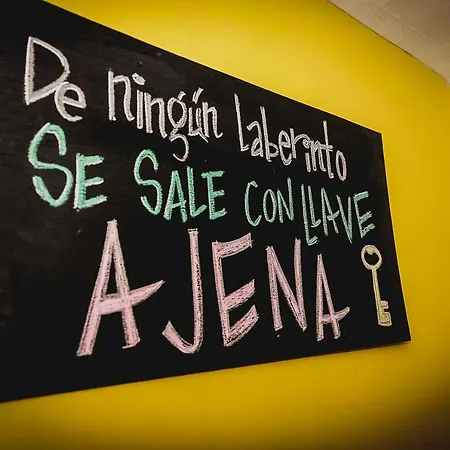 De ningún laberinto
SE SALE CON LLAVE
AJENA